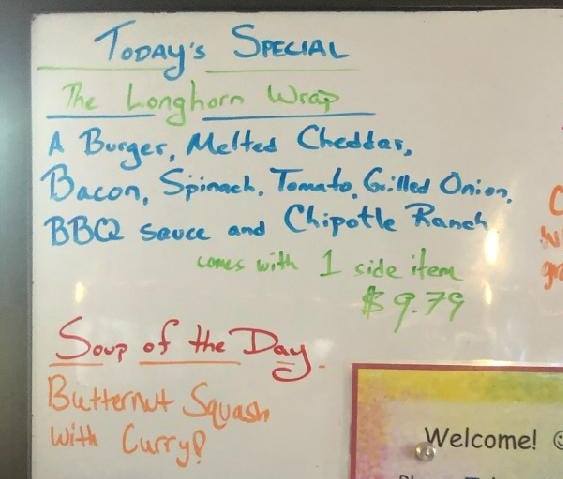 Today's Special
The Longhorn Wrap
A Burger, Melted Cheddar,
Bacon, Spinach, Tomato, Grilled Onion,
BBQ sauce and Chipotle Ranch
comes with 1 side item
$9.79
Soup of the Day
Butternut Squash
With Curry!
Welcome!